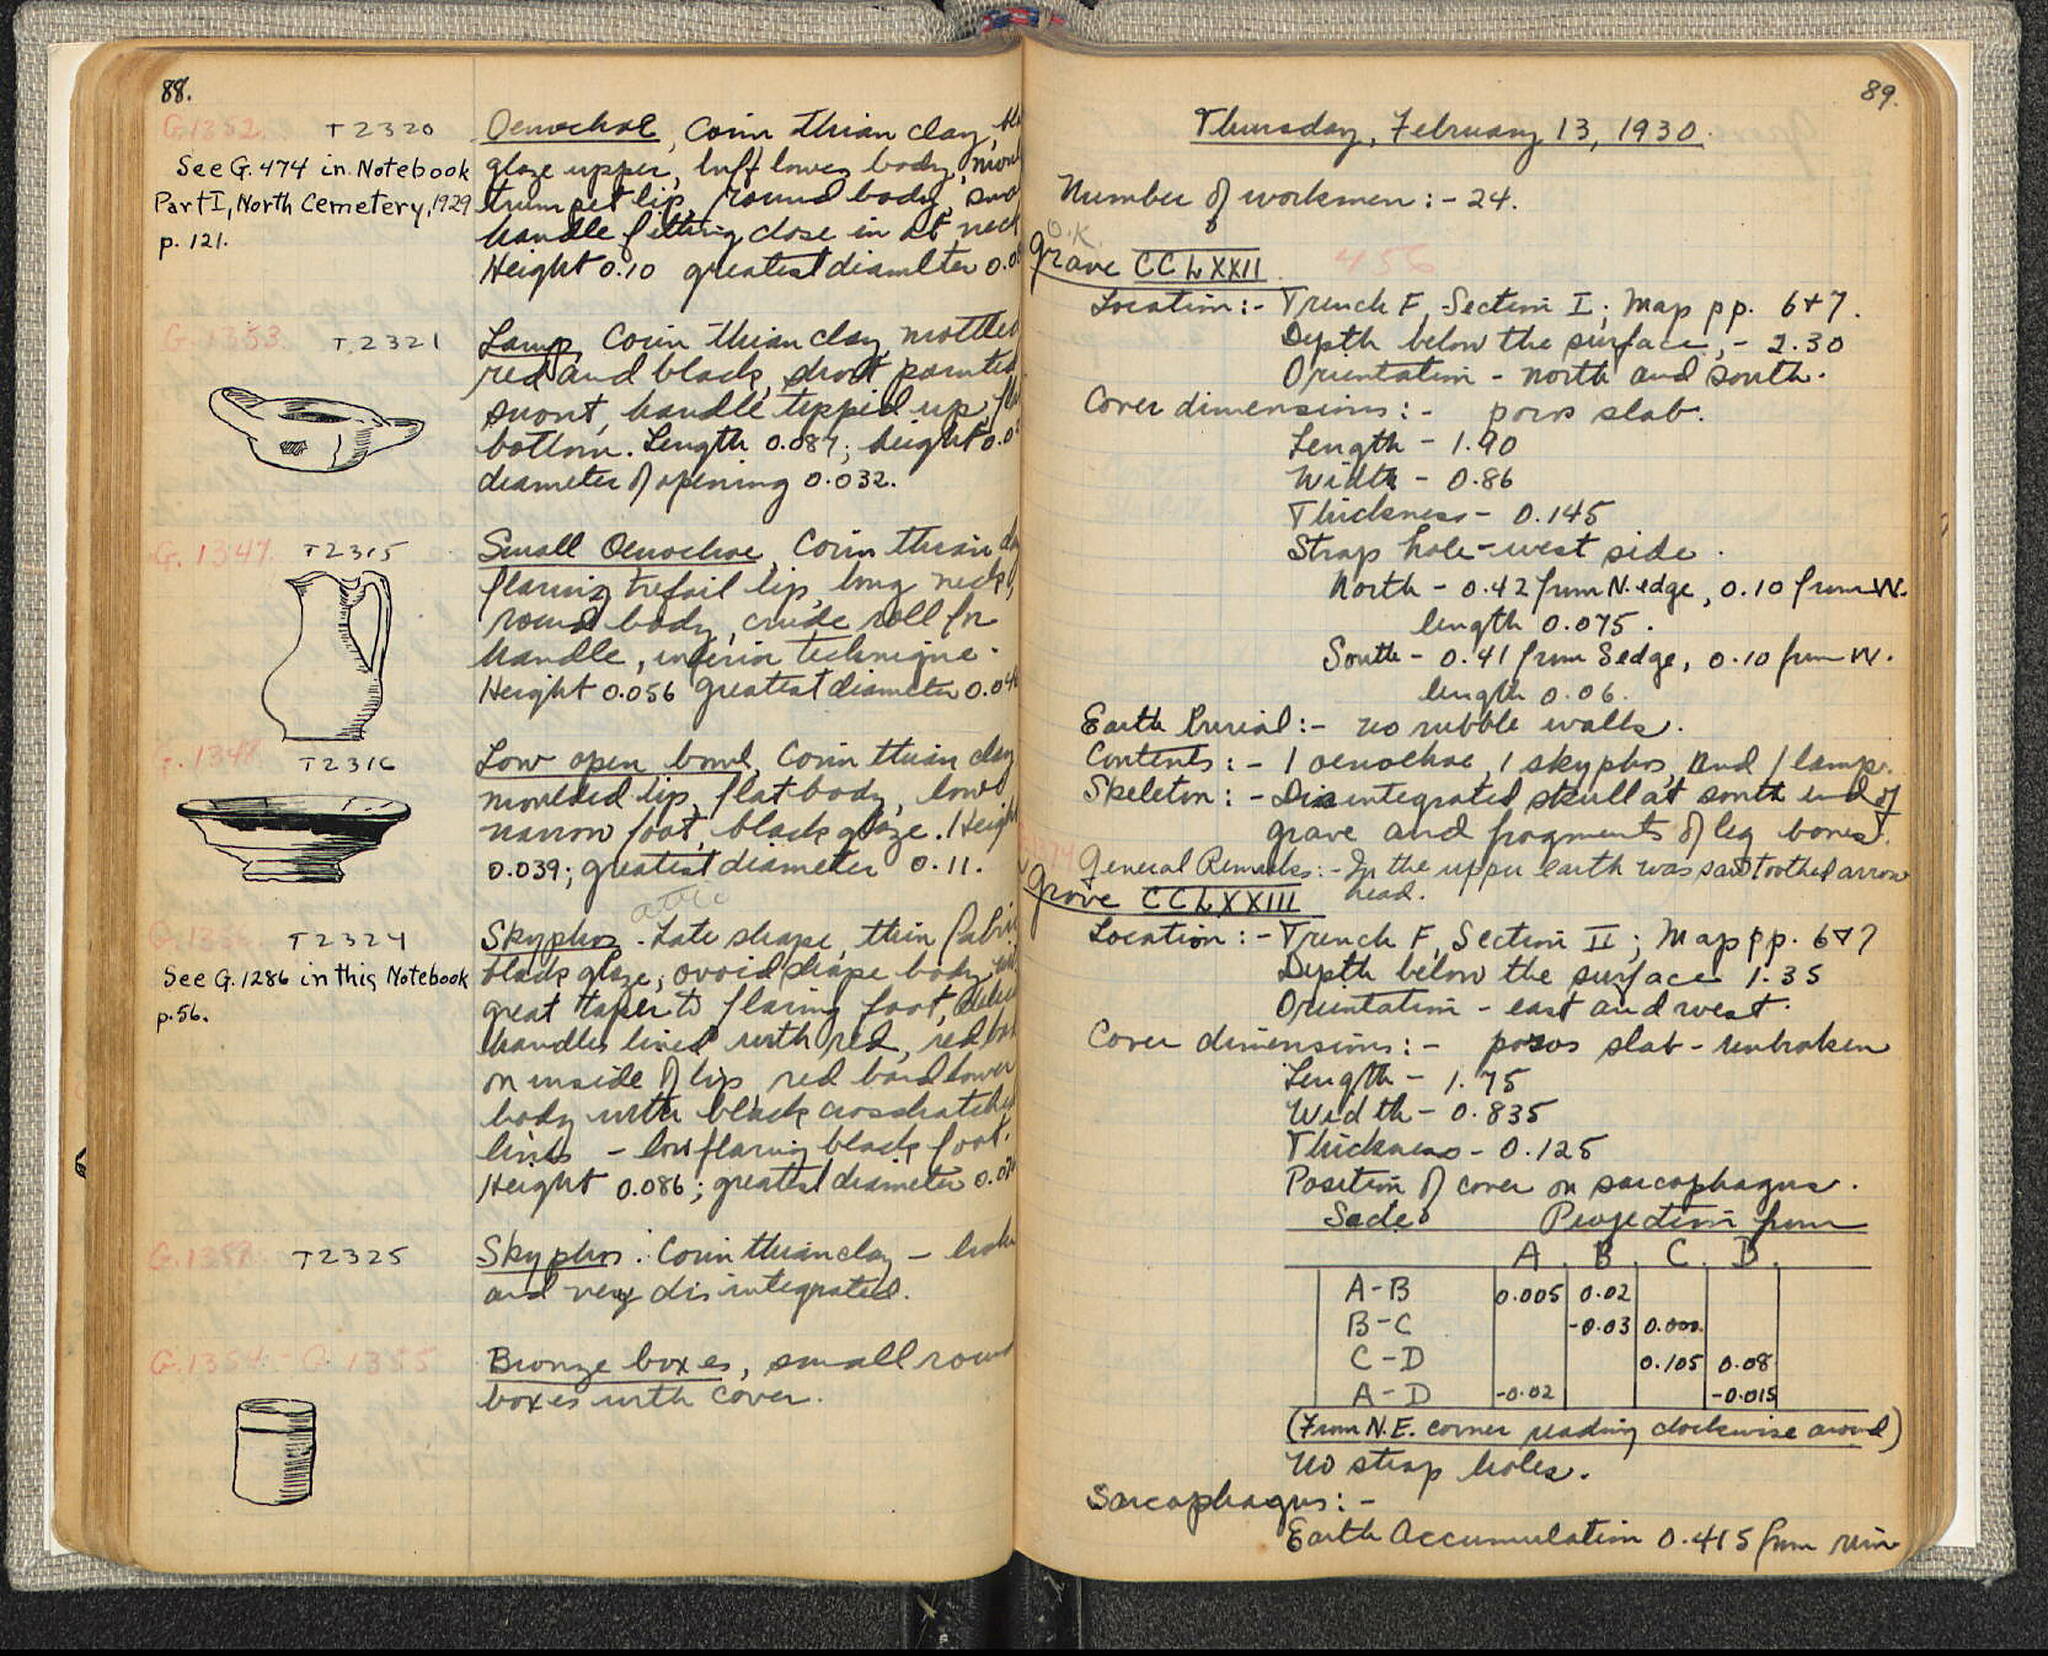 88.
G.1352. T2320
See G. 474 in Notebook
Part I, North Cemetery, 1929
p. 121.
Oenochoe, Corinthian clay,
glaze upper, buff lower body,
trumpet lip, round body,
handle fitting close in at neck
Height 0.10 greatest diameter
G.1353. T.2321
Lamp, Corinthian clay mottled
red and black, short pointed
snout, handle tipped up,
bottom. Length 0.087; height
diameter of opening 0.032.
G. 1347. T2315
Small Oenochoe, Corinthian
flaring trefoil lip, long neck,
round body, crude roll for
handle, inferior technique.
Height 0.056 greatest diameter
G. 1348. T2316
Low open bowl, Corinthian clay
moulded lip, flat body, low
narrow foot, black glaze. Height
0.039; greatest diameter 0.11.
attic
T2324
See G. 1286 in this Notebook
p. 56.
Skyphos. Late shape, thin fabric
black glaze, ovoid shape body
great taper to flaring foot,
handles lined with red, red
on inside of lip red band lower
body with black crosshatched
lines - low flaring black foot.
Height 0.086; greatest diameter
G.1358. T2325
Skyphos: Corinthian clay -
and very disintegrated.
G.1354 - G. 1355
Bronze boxes, small round
boxes with cover.
89.
Thursday, February 13, 1930.
Number of workmen: - 24.
O.K.
Grave CCLXXII 456
Location: - Trench F, Section I; Map pp. 6+7.
Depth below the surface, - 2.30
Orientation - north and south.
Cover dimensions: - poros slab.
Length - 1.90
Width - 0.86
Thickness - 0.145
Strap hole - west side.
North - 0.42 from N. edge, 0.10 from W.
length 0.075.
South - 0.41 from S edge, 0.10 from W.
length 0.06.
Earth Burial: - no rubble walls.
Contents: - 1 oenochoe, 1 skyphos, and 1 lamp.
Skeleton: - Disintegrated skull at south end of
grave and fragments of leg bones.
General Remarks: - In the upper earth was saw toothed arrow
head.
Grave CCLXXIII
Location: - Trench F, Section II; Map pp. 6+7
Depth below the surface 1.35
Orientation - east and west.
Cover dimensions: - poros slab - unbroken
Length - 1.75
Width - 0.835
Thickness - 0.125
Position of cover on sarcophagus.
Sides Projection from
A. B. C. D.
A-B 0.005 0.02
B-C -0.03 0.000
C-D 0.105 0.08
A-D -0.02 -0.015
(From N.E. corner reading clockwise around)
No strap holes.
Sarcophagus: -
Earth Accumulation 0.415 from rim